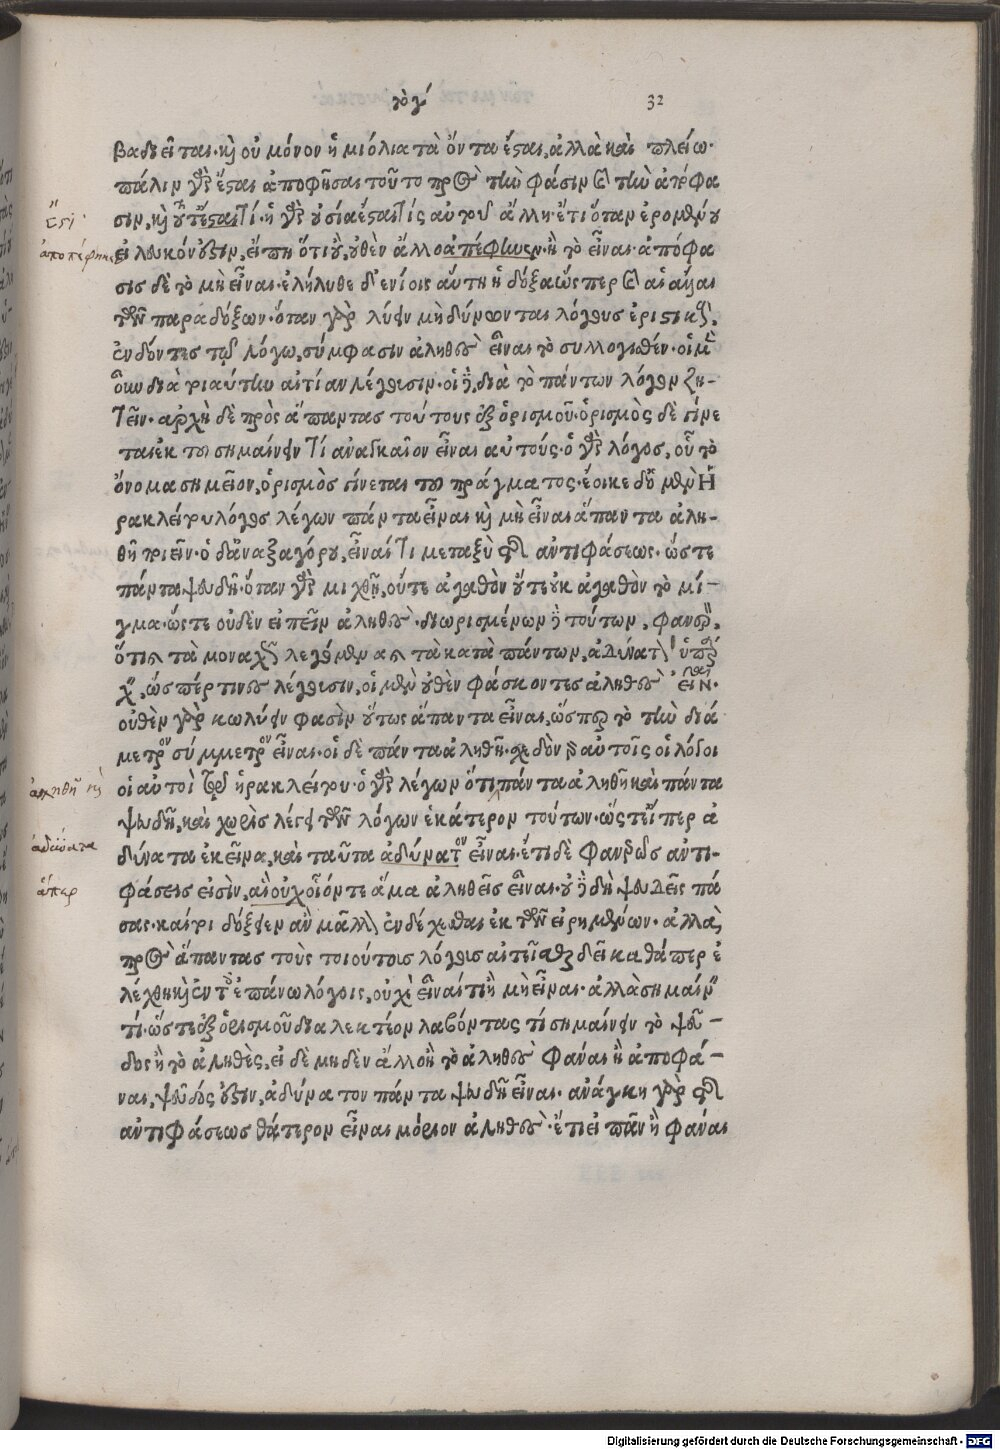 τὸ γ´ 32
βαδιεῖται. καὶ οὐ μόνον ἡμιόλια τὰ ὄντα ἔσται, ἀλλὰ καὶ πλείω.
πάλιν γὰρ ἔσται ἀποφῆσαι τοῦτο πρὸς τὴν φάσιν καὶ τὴν ἀπόφα
σιν, καὶ τοῦτ' ἔσται τί. ἡ γὰρ οὐσία ἔσται τίς αὐτοῦ ἄλλη. ἔτι ὅταν ἐρομένου
εἰ λευκόν ἐστιν, εἴπῃ ὅτι οὔ, οὐθὲν ἄλλο ἀπέφηνεν. ἢ τὸ εἶναι. ἀπόφα
σις δὲ τὸ μὴ εἶναι. ἐλήλυθε δ' ἐνίοις αὕτη ἡ δόξα ὥσπερ καὶ αἱ ἄλλαι
τῶν παραδόξων. ὅταν γὰρ λύειν μὴ δύνωνται λόγους ἐριστικούς,
ἐνδόντες τῷ λόγῳ, σύμφασιν ἀληθὲς εἶναι τὸ συλλογισθέν. οἱ μὲν
οὖν διὰ τοιαύτην αἰτίαν λέγουσιν. οἱ δὲ, διὰ τὸ πάντων λόγον ζη-
τεῖν. ἀρχὴ δὲ πρὸς ἅπαντας τούτους ἐξ ὁρισμοῦ. ὁρισμὸς δὲ γίνε
ται ἐκ τοῦ σημαίνειν τί ἀναγκαῖον εἶναι αὐτούς. ὁ γὰρ λόγος, οὗ τὸ
ὄνομα σημεῖον, ὁρισμὸς γίνεται τοῦ πράγματος. ἔοικε δ' ὁ μὲν Ἡ
ρακλείτου λόγος λέγων πάντα εἶναι καὶ μὴ εἶναι ἅπαντα ἀλη-
θῆ ποιεῖν. ὁ δ' ἀναξαγόρου, εἶναί τι μεταξὺ τῆς ἀντιφάσεως. ὥστε
πάντα ψευδῆ. ὅταν γὰρ μιχθῇ, οὔτε ἀγαθὸν οὔτε οὐκ ἀγαθὸν τὸ μί-
γμα. ὥστε οὐδὲν εἰπεῖν ἀληθές. διωρισμένων δὲ τούτων, φανερὸν,
ὅτι καὶ τὰ μοναχῶς λεγόμενα καὶ τὰ κατὰ πάντων, ἀδύνατον ὑπάρ
χειν, ὥσπέρ τινες λέγουσιν, οἱ μὲν οὐθὲν φάσκοντες ἀληθὲς εἶναι.
οὐθὲν γὰρ κωλύειν φασὶν οὕτως ἅπαντα εἶναι, ὥσπερ τὸ τὴν διά
μετρον σύμμετρον εἶναι. οἱ δὲ πάντα ἀληθῆ. σχεδὸν γὰρ αὐτοῖς οἱ λόγοι
οἱ αὐτοὶ τῷ ἡρακλείτου. ὁ γὰρ λέγων ὅτι πάντα ἀληθῆ καὶ πάντα
ψευδῆ, καὶ χωρὶς λέγει τῶν λόγων ἑκάτερον τούτων. ὥστ' εἴπερ ἀ
δύνατα ἐκεῖνα, καὶ ταῦτα ἀδύνατον εἶναι. ἔτι δὲ φανερῶς ἀντι-
φάσεις εἰσὶν, αἳ οὐχ οἷόν τε ἅμα ἀληθεῖς εἶναι. οὐδὲ δὴ ψευδεῖς πά
σας. καίτοι δόξειεν ἂν μᾶλλον ἐνδέχεσθαι ἐκ τῶν εἰρημένων. ἀλλὰ
πρὸς ἅπαντας τοὺς τοιούτους λόγους αἰτεῖσθαι δεῖ καθάπερ ἐ
λέχθη καὶ ἐν τοῖς ἐπάνω λόγοις, οὐχὶ εἶναί τι ἢ μὴ εἶναι. ἀλλὰ σημαίνειν
τί. ὥστε ἐξ ὁρισμοῦ διαλεκτέον λαβόντας τί σημαίνειν τὸ ψεῦ-
δος ἢ τὸ ἀληθές, εἰ δὲ μηδὲν ἄλλο ἢ τὸ ἀληθὲς φάναι ἢ ἀποφά-
ναι, ψεῦδός ἐστιν, ἀδύνατον πάντα ψευδῆ εἶναι. ἀνάγκη γὰρ τῆς
ἀντιφάσεως θάτερον εἶναι μόριον ἀληθές. ἔτι εἰ πᾶν ἢ φάναι
ἔστι
ἀποπέφηκεν
ἀληθῆ καὶ
ἀδύνατα
ἅπερ
Digitalisierung gefördert durch die Deutsche Forschungsgemeinschaft - DFG